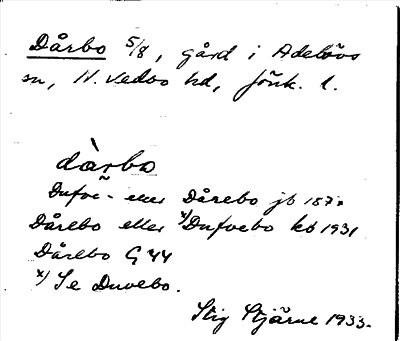 Dårbo 5/8, gård i Adelövs
sn, N. Vedbo hd, Jönk. l.
dàrbo
Dufve- eller Dårebo jb 187
Dårebo eller x) Dufvebo kb 1931
Dårebo G 44
x) Se Duvebo.
Stig Stjärne 1933.